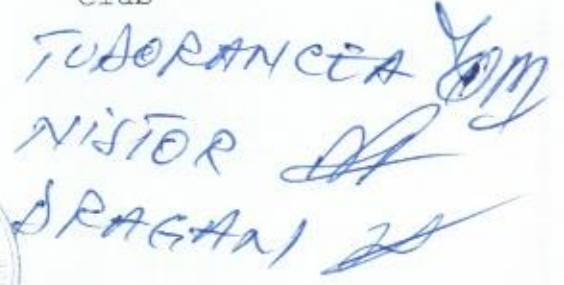 Club
TUDORANCEA
NISTOR
DRAGAN